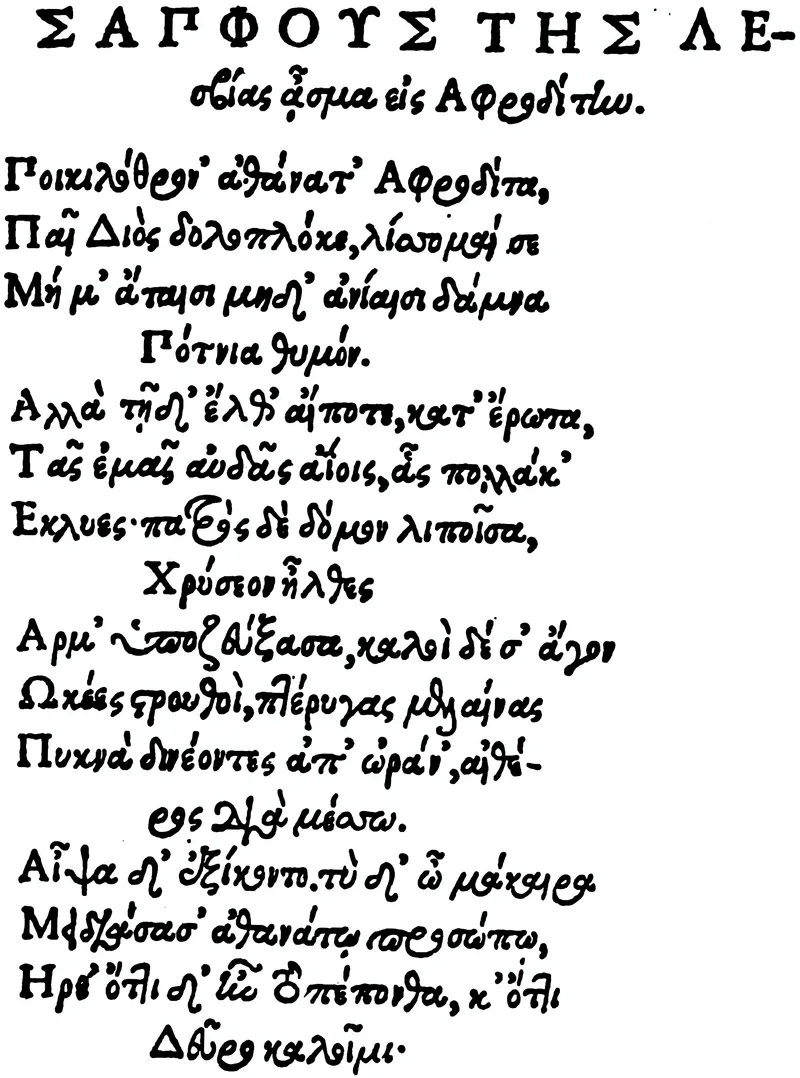 ΣΑΠΦΟΥΣ ΤΗΣ ΛΕ-
σβίας ᾆσμα εἰς Ἀφροδίτην.
Ποικιλόθρον' ἀθάνατ' Ἀφροδίτα,
Παῖ Διὸς δολοπλόκε, λίσσομαί σε
Μή μ' ἄταισι μηδ' ἀνίαισι δάμνα
Πότνια θυμόν.
Αλλὰ τῇδ' ἔλθ' αἴποτε, κατ' ἔρωτα,
Τᾶς ἐμᾶς αὐδᾶς ἄϊοις, ἇς πολλάκ'
Εκλυες· πατρὸς δὲ δόμον λιποῖσα,
Χρύσεον ἦλθες
Αρμ' ὑποζεύξασα, καλοὶ δέ σ' ἄγον
Ωκέες στρουθοὶ, πτέρυγας μελαίνας
Πυκνὰ δινέοντες ἀπ' ὠράν', αἰθέ-
ρος διὰ μέσσω.
Αἶψα δ' ἐξίκοντο. τὺ δ' ὦ μάκαιρα
Μειδιάσασ' ἀθανάτῳ προσώπω,
Ηρε' ὅττι δ' ἦν τὸ πέπονθα, κ' ὅττι
Δεῦρο καλοῖμι·